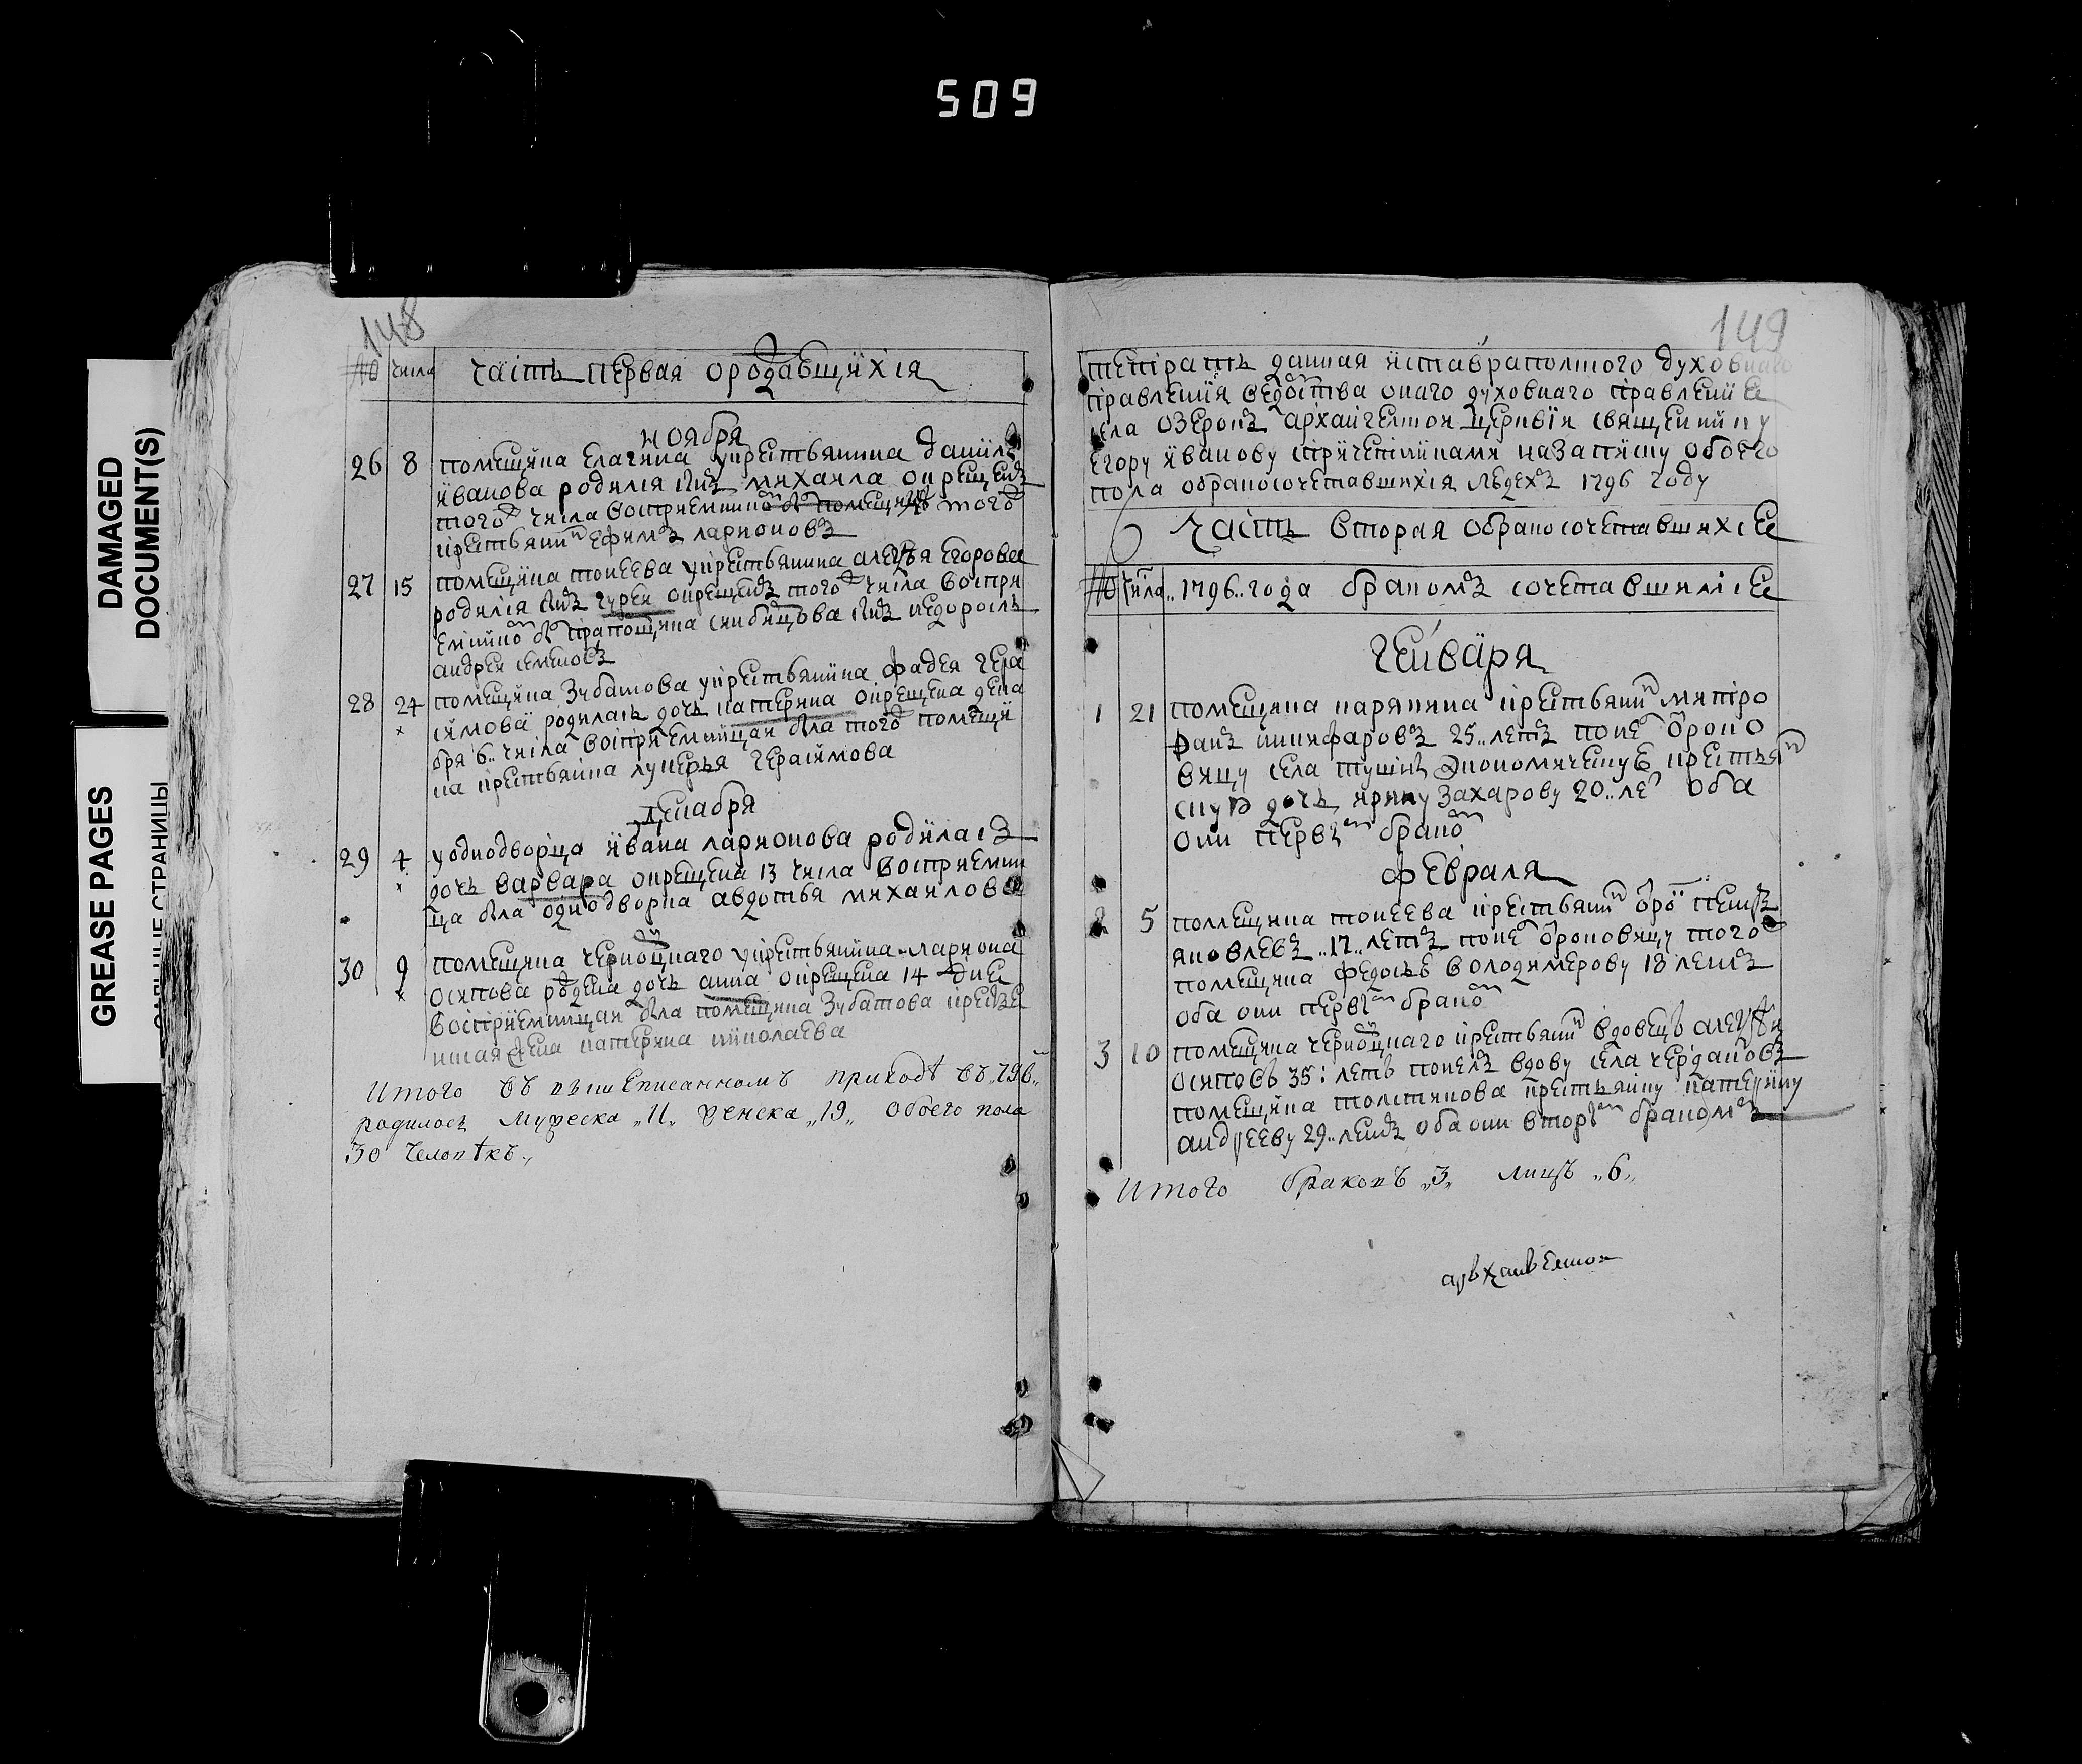 509
DAMAGED
DOCUMENT(S)
GREASE PAGES
САЛЬНЫЕ СТРАНИЦЫ
148
№ числа часть первая ородавшихся
ноября
26 8 помещика Елагина укрестьянина данила
иванова родился снъ михаила окрещенъ
того числа восприемникъ
крестьянинъ ефимъ ларионовъ
27 15 помещика мокеева укрестьянина алексея Егорова
родился снъ гурей окрещенъ тогож числа воспри
емникомъ былъ прапощика снъ недоросль
андрей семеновъ
28 24 помещика Зубатова укрестьянина фадея гера
симова родилась дочь катерина окрещена дека
бря 6.. числа восприемницаи была того помещи
ка крестьянина лукерья герасимова
декабря
29 4 уоднодворца ивана ларионова родилась
дочь варвара окрещена 13 числа восприемни
ца была однодворка авдотья михайлова
30 9 помещика укрестьянина лариона
осипова рождена дочь анна окрещена 14 дне
восприемницаи была помещика Зубатова крестьа
нская жена катерина николаева
Итого въ вышеписанномъ приходѣ въ „796„
родилось мужеска „11„ женска „19„ обоего пола
30 человѣкъ.,
149
тетрать данная иставрополкого духовнаго
правления ведомства онаго духовнаго правление
села озерокъ архангелской церкви священнику
Егору иванову спричетниками назаписку обоего
пола обракосочетавшихся людехъ 1796 году
часть вторая обракосочетавшихсе
№ числа .. 1796.. года бракомъ сочетавшимсе
генваря
1 21 помещика карякина крестьянинъ митро
фанъ никифаровъ 25.. летъ понелъ отроко
вицу села экономическую крестьян
скую дочь ирину захарову 20.. летъ оба
они первымъ бракомъ
февраля
2 5 помещика мокеева крестьянинъ отрокъ петръ
яковлевъ .. 17.. летъ понелъ отроковицу того
помещика федосью володимерову 18 летъ
оба они первымъ бракомъ
3 10 помещика крестьянинъ вдовецъ алексѣй
осиповъ 35: летъ понелъ вдову села чердановъ
помещика толстякова крестьянку катерину
андрееву 29.. летъ оба они вторымъ бракомъ
Итого браковъ „3„ лицъ „6„